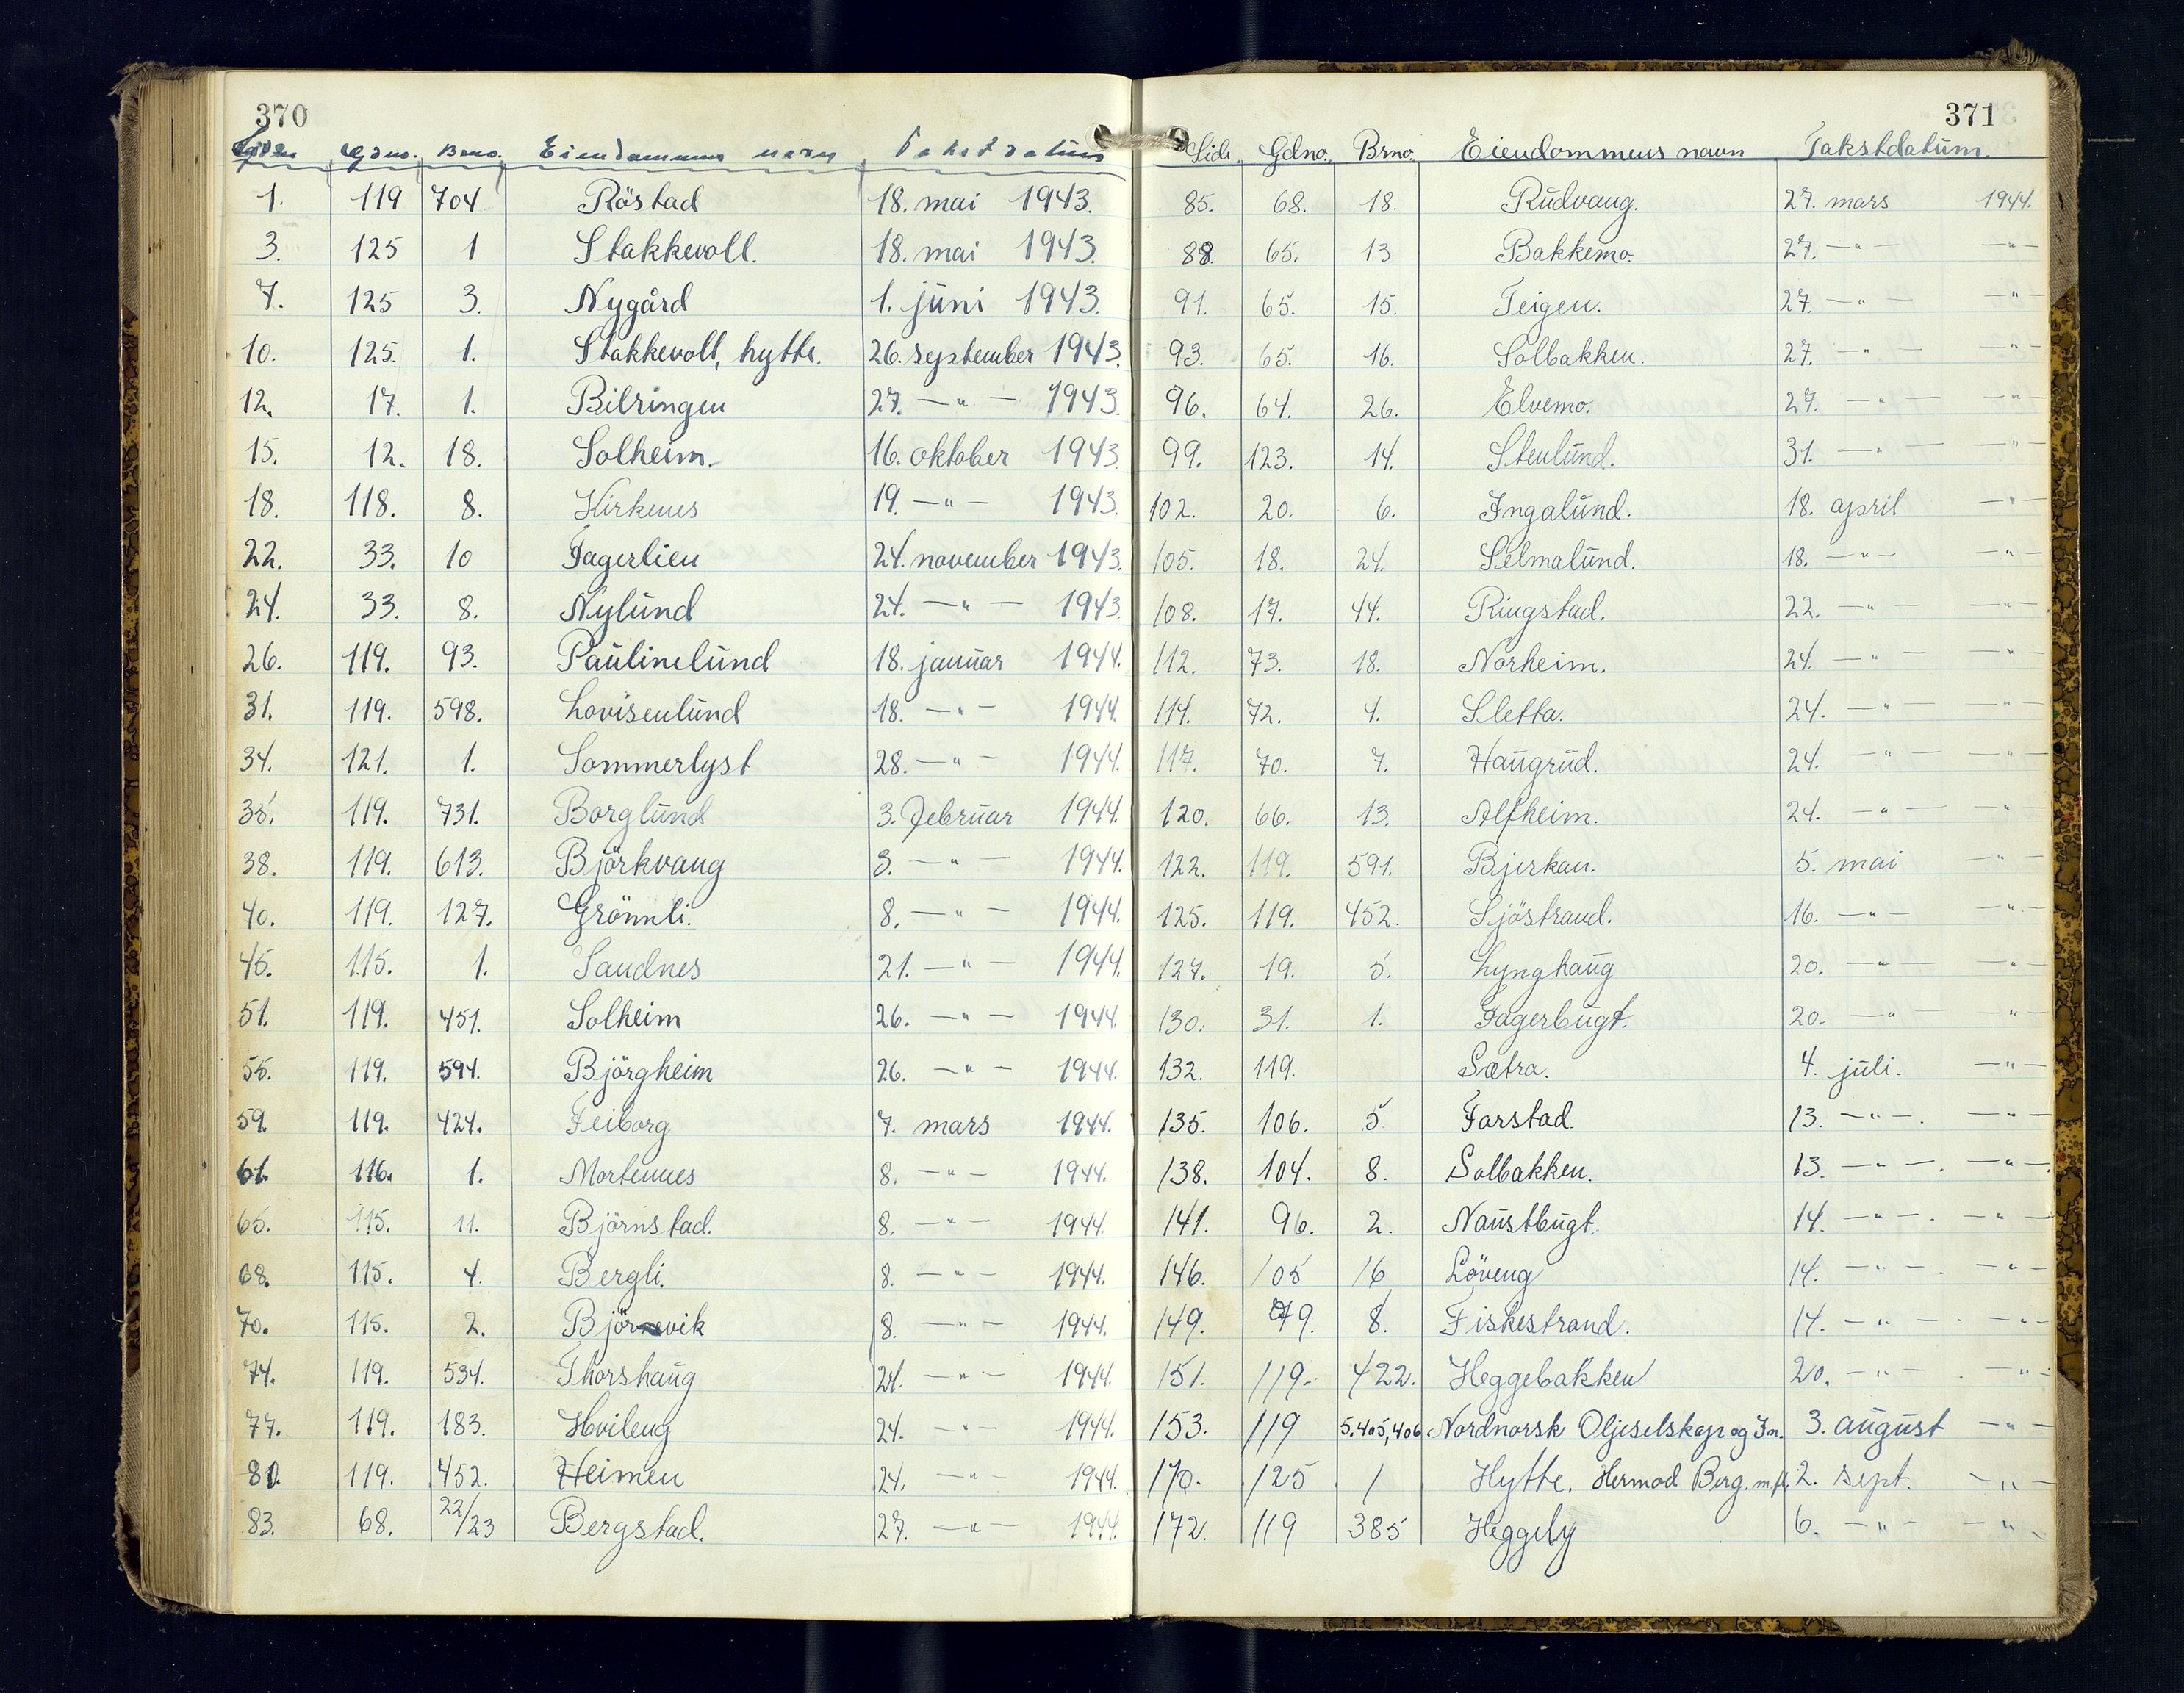 370
Siden Gdno. Brno. Eiendommens navn Takstdatum
1. 119 704 Röstad 18. mai 1943.
3. 125 1 Stakkevoll. 18. mai 1943.
7. 125 3. Nygård 1. juni 1943.
10. 125. 1. Stakkevoll, hytte. 26. september 1943.
12. 17. 1. Bilringen 27. —"— 1943.
15. 12. 18. Solheim. 16. oktober 1943
18. 118. 8. Kirkenes 19. —"— 1943.
22. 33. 10 Fagerlien 24. november 1943.
24. 33. 8. Nylund 24. —"— 1943.
26. 119. 93. Paulinelund 18. januar 1944.
31. 119. 598. Lovisenlund 18. —"— 1944.
34. 121. 1. Sommerlyst 28. —"— 1944.
35. 119. 731. Borglund 3. februar 1944.
38. 119. 613. Björkvang 3. —"— 1944.
40. 119. 127. Grönnli. 8. —"— 1944.
45. 115. 1. Sandnes 21. —"— 1944.
51. 119. 451. Solheim 26. —"— 1944.
55. 119. 594. Björgheim 26. —"— 1944.
59. 119. 424. Feiborg 7. mars 1944.
61. 116. 1. Mortennes 8. —"— 1944.
65. 115. 11. Björnstad. 8. —"— 1944.
68. 115. 4. Bergli. 8. —"— 1944.
70. 115. 2. Björnevik 8. —"— 1944.
74. 119. 534. Thorshaug 24. —"— 1944.
77. 119. 183. Hvileng 24. —"— 1944.
81. 119. 452. Heimen 24. —"— 1944.
83. 68. 22/23 Bergstad. 27. —"— 1944.
371
Side. Gdno. Brno. Eiendommens navn Takstdatum.
85. 68. 18. Rudvang. 27. mars 1944.
88. 65. 13 Bakkemo. 27. —"— —"—
91. 65. 15. Teigen. 27. —"— —"—
93. 65. 16. Solbakken. 27. —"— —"—
96. 64. 26. Elvemo. 27. —"— —"—
99. 123. 14. Stenlund. 31. —"— —"—
102. 20. 6. Ingalund. 18. april —"—
105. 18. 24. Selmalund. 18. —"— —"—
108. 17. 44. Ringstad. 22. —"— —"—
112. 73. 18. Norheim. 24. —"— —"—
114. 72. 4. Sletta. 24. —"— —"—
117. 70. 7. Haugrud. 24. —"— —"—
120. 66. 13. Alfheim. 24. —"— —"—
122. 119. 591. Bjerkan. 5. mai —"—
125. 119. 452. Sjöstrand. 16. —"— —"—
127. 19. 5. Lynghaug 20. —"— —"—
130. 31. 1. Fagerbugt. 20. —"— —"—
132. 119. Sætra. 4. juli. —"—
135. 106. 5 Farstad. 13. —"—. —"—
138. 104. 8. Solbakken. 13. —"—. —"—.
141. 96. 2. Naustbugt. 14. —"—. —"—
146. 105 16 Löveng 14. —"—. —"—
149. 79. 8. Fiskestrand. 14. —"—. —"—
151. 119. 422. Heggebakken 20. —"—. —"—
153. 119 5.405,406 Nordnorsk Oljeselskap og In. 3. august —"—
170. 125 1 Hytte. Hermod Berg. m.fl. 2. sept. —"—
172. 119 385 Heggely 6. —"— —"—